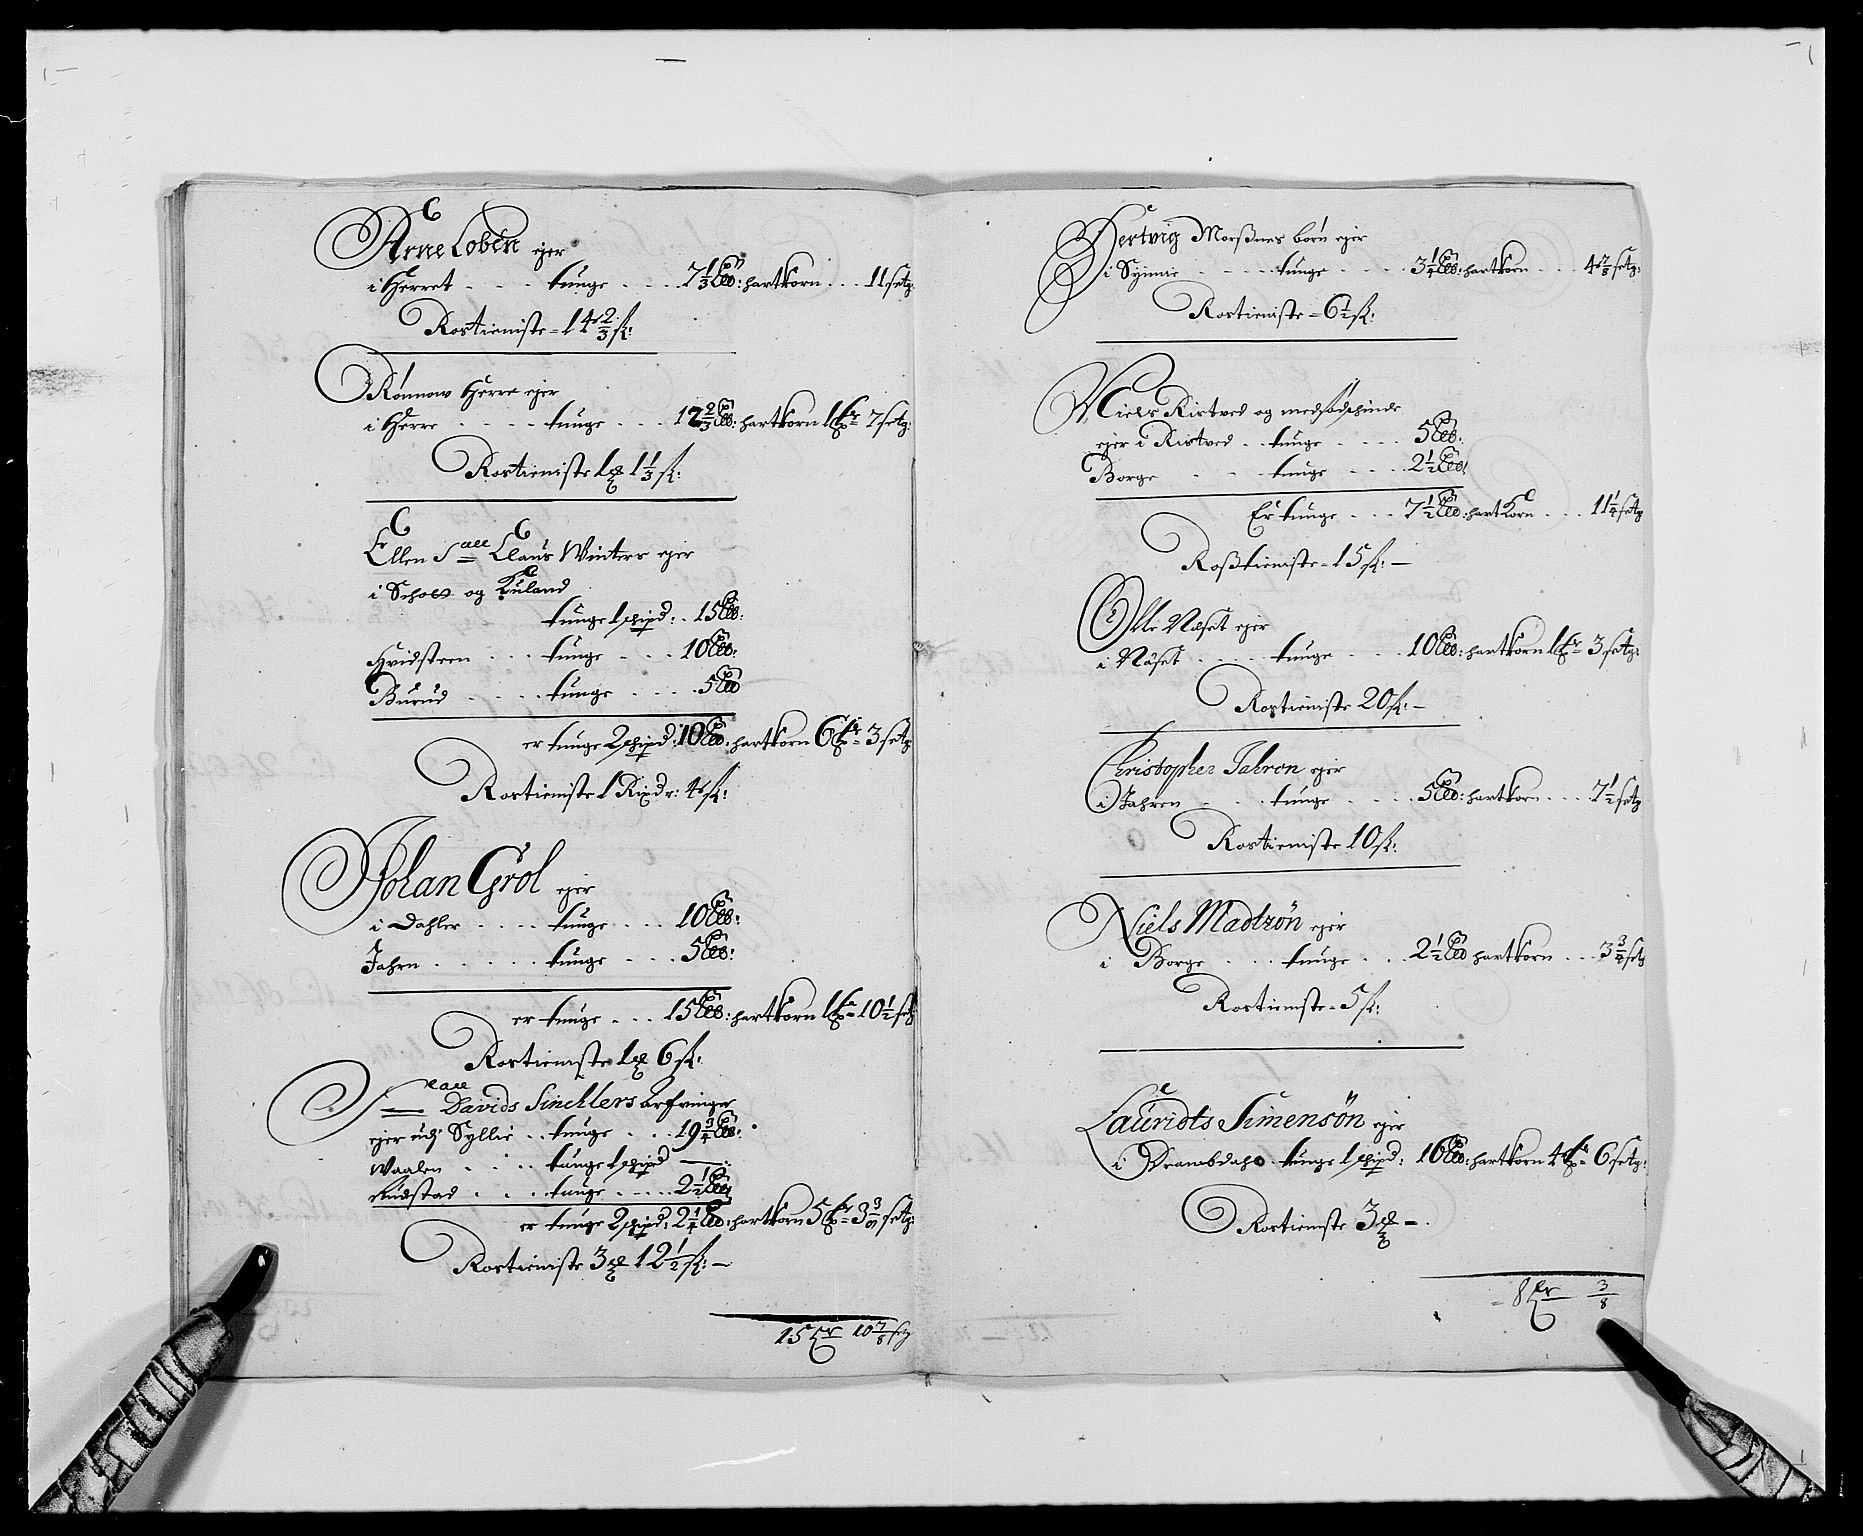 Arne Loben ejer
i Herret . . . tunge . . . . 7 1/3 Lb: hartkorn . . . 11 setg:
Rostieniste - 14 2/3 sk:
Rönnow Herre ejer
i Herre . . . . tunge . . . 12 2/3 Lb: hartkorn 1 tr 7 setg:
Rostieniste 1 1 1/3 sk:
Ellen Sall Claus Winters ejer
i Schoes og Kuland
tunge 1 schipd: . 15 Lb:
Hvidsteen . . . tunge . . . 10 Lb:
Burud . . . . tunge . . . . 5 Lb
er tunge 2 schipd: 10 Lb: hartkorn 6 tr 3 setg
Rostieniste 1 Rixdr: 4 sk:
Johan Grol ejer
i Dahler . . . . tunge . . . . 10 Lb:
Jahrn . . . . . tunge . . . 5 Lb:
er tunge . . . 15 Lb: hartkorn 1 tr 10 1/2 setg
Rostieniste 1 6 sk:
Sall Davids Sinchlers arfvinger
ejer udj Syllie . . tunge . . . 19 3/4 Lb:
Waalen . . . . tunge 1 schipd —:
Rudstad . . . . tunge . . . . . 2 1/2 Lb
er tunge 2 schipd: 2 1/4 Lb: hartkorn 5 tr 3 3/8 setg:
Rostieniste 3 12 1/2 sk: —
15 tr 10 7/8 setg
Hertvig Morßnes børn ejer
i Synnie . . . . tunge . . . . 3 1/4 Lb: hartkorn . . . 4 7/8 setg:
Rostieniste - 6 1/2 sk:
Niels Ristved og medsødschinde
ejer i Ristved . . tunge . . . . . 5 Lb:
Borge . . . tunge . . . . 2 1/2 Lb:
Er tunge . . . 7 1/2 Lb: hartkorn . . . 11 1/4 setg
Roßtieniste - 15 sk: —
Olle Næset ejer
i Næset . . . . tunge . . . 10 Lb: hartkorn 1 tr 3 setg:
Rostieniste 20 sk: —
Christopher Jahron ejer
i Jahren . . . . tunge . . . . . 5 Lb: hartkorn . . . 7 1/2 setg
Rostieniste 10 sk:
Niels Madtzön ejer
i Borge . . . . tunge . . . 2 1/2 Lb hartkorn . . . 3 3/4 setg
Rostieniste - 5 sk:
Lauridts Simensön ejer
i Drambdahl . . tunge 1 schipd: 16 Lb: hartkorn 4 tr 6 setg:
Rostieniste 3 —.
8 tr 3/8